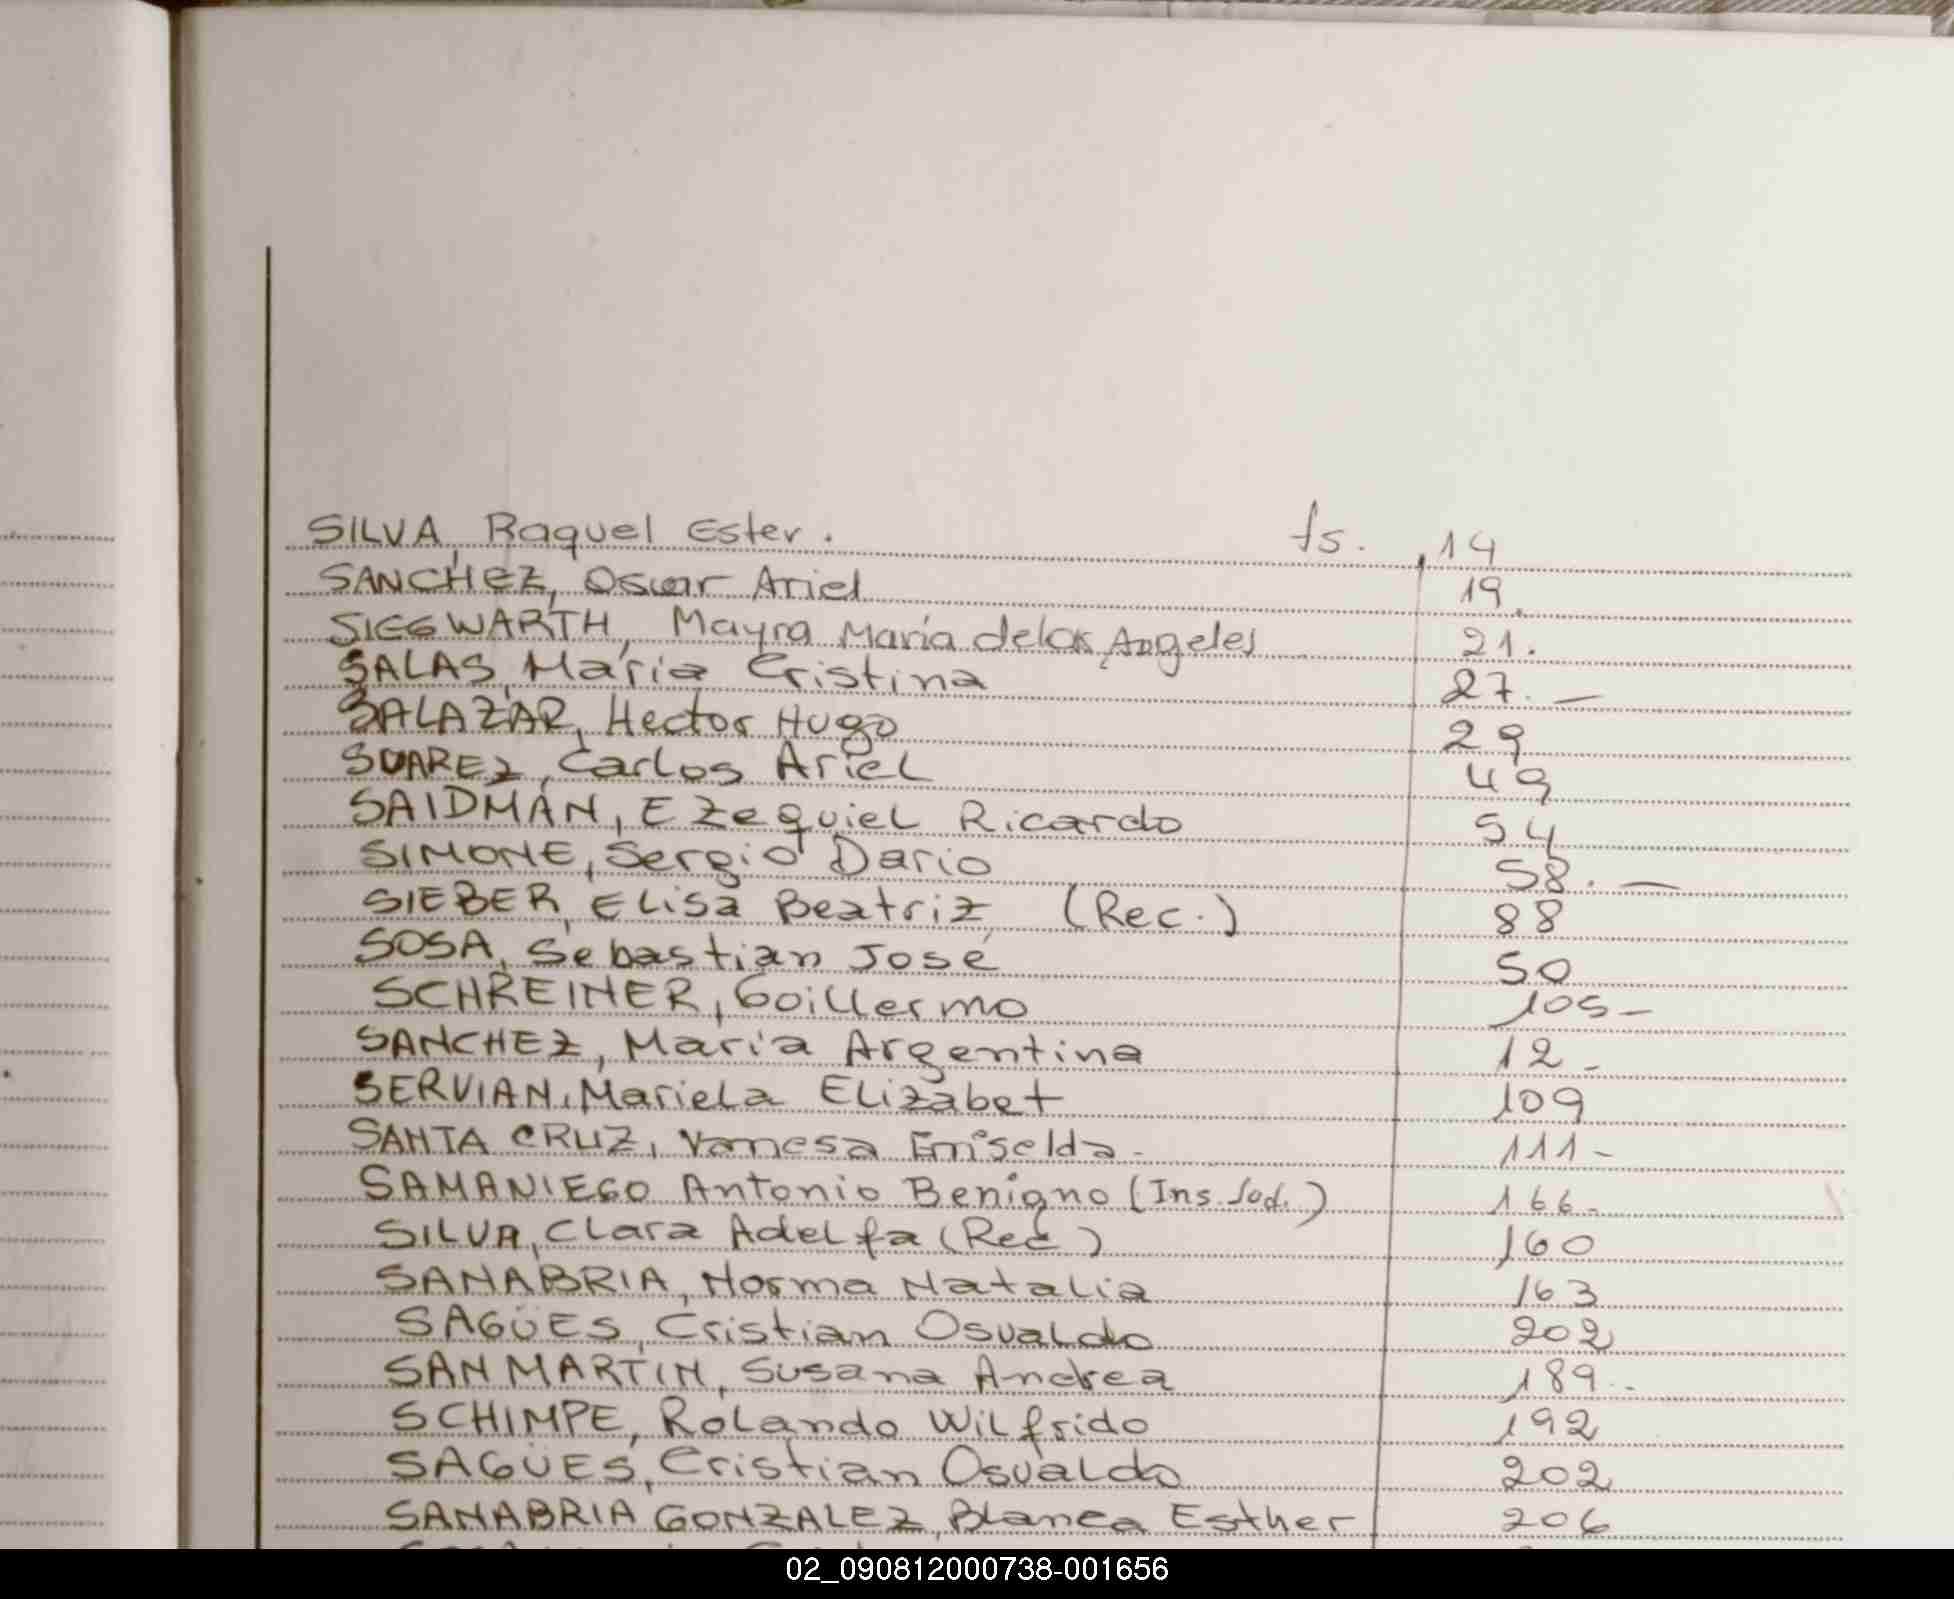 SILVA, Raquel Ester. fs. 14
SANCHEZ, Oscar Ariel 19.
SIEGWARTH, Mayra María delos Angeles 21.
SALAS, Maria Cristina 27. —
SALAZAR, Hector Hugo 29
SUAREZ, Carlos Ariel 49
SAIDMAN, Ezequiel Ricardo 54
SIMONE, Sergio Dario 58. —
SIEBER, Elisa Beatriz (Rec.) 88
SOSA, Sebastian José 50
SCHREINER, Guillermo 105 -
SANCHEZ, Maria Argentina 12 -
SERVIAN, Mariela Elizabet 109
SANTA CRUZ, Vanesa Griselda - 111 -
SAMANIEGO Antonio Benigno (Ins. Jud.) 166 -
SILVA, Clara Adelfa (Rec) 160
SANABRIA, Norma Natalia 163
SAGÜES, Cristian Osvaldo 202
SAN MARTIN, Susana Andrea 189 -
SCHIMPE, Rolando Wilfrido 192
SAGÜES, Cristian Osvaldo 202
SANABRIA GONZALEZ, Blanca Esther 206
02_090812000738-001656